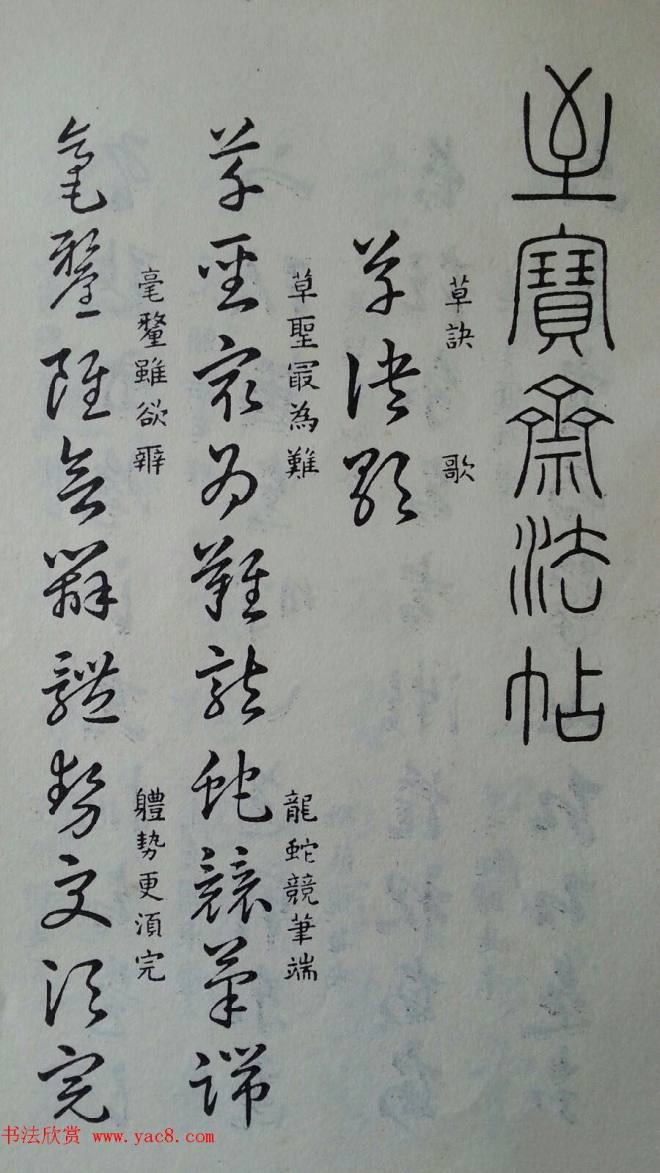 至寶齋法帖
草訣 歌
草訣歌
草聖冣為難 龍蛇競筆端
草聖最為難龍蛇競筆端
毫釐雖欲辨 軆勢更湏完
毫釐雖欲辨體勢更須完
书法欣赏 www.yac8.com